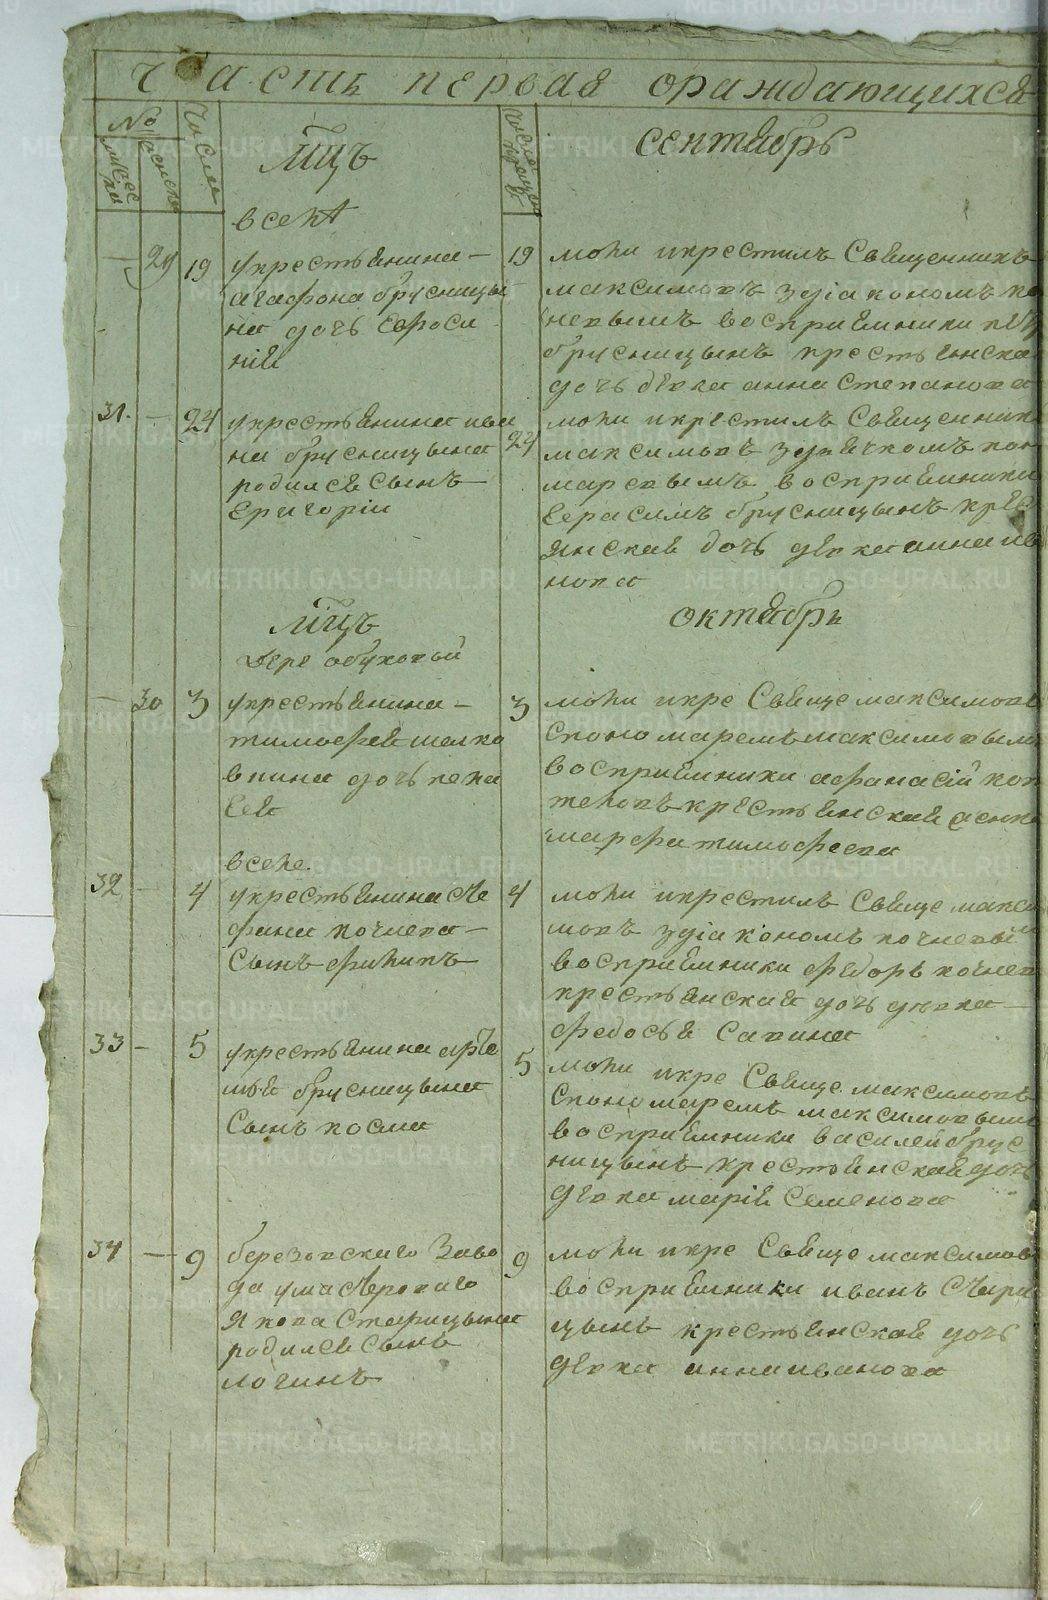 Часть первая ораждающихся
№
Числа
мцъ
сентябрь
в селѣ
29 19 укрестьянина
агафона брусницы
на дочь Ефроси
нія
19 моли икрестилъ Священникъ
максимовъ здіакономъ ко
невымъ восприемники пет
брусницынъ крестьянска
дочь девка анна степанова
31 24 укрестьянина ива
на брусницына
родился Сынъ
Григоріи
24 моли икрестилъ Священник
максимовъ здьячкомъ пон
маревымъ восприемники
Герасимъ брусницынъ крес
янская дочь девка анна ив
нова
мцъ
октябрь
Дере обуховой
30 3 укрестьянина
тимофея шелко
вкина дочь пела
гея
3 моли икре Священ максимовъ
Спономаремъ максимовым
восприемники афанасій коп
теловъ крестьянская жонк
марфа тимофеева
в селе
32 4 укрестьянина сте
фана кочнева
Сынъ филипъ
4 моли икрестилъ Свяще макси
мовъ здіакономъ кочневы
восприемники федоръ кочнев
крестьянская дочь девка
федосья Савина
33 5 укрестьянина арте
мья брусницына
Сынъ косма
5 моли икре Свяще максимовъ
Спономаремъ максимовым
восприемники василей брус
ницынъ крестьянская дочь
девка марія Семенова
34 9 березовскаго Заво
да умастероваго
Якова Старицына
родился Сынъ
логинъ
9 моли икре Свяще максимов
восприемники иванъ Стари
цынъ крестьянская дочь
девка анна иванова
METRIKI.GASO-URAL.RU